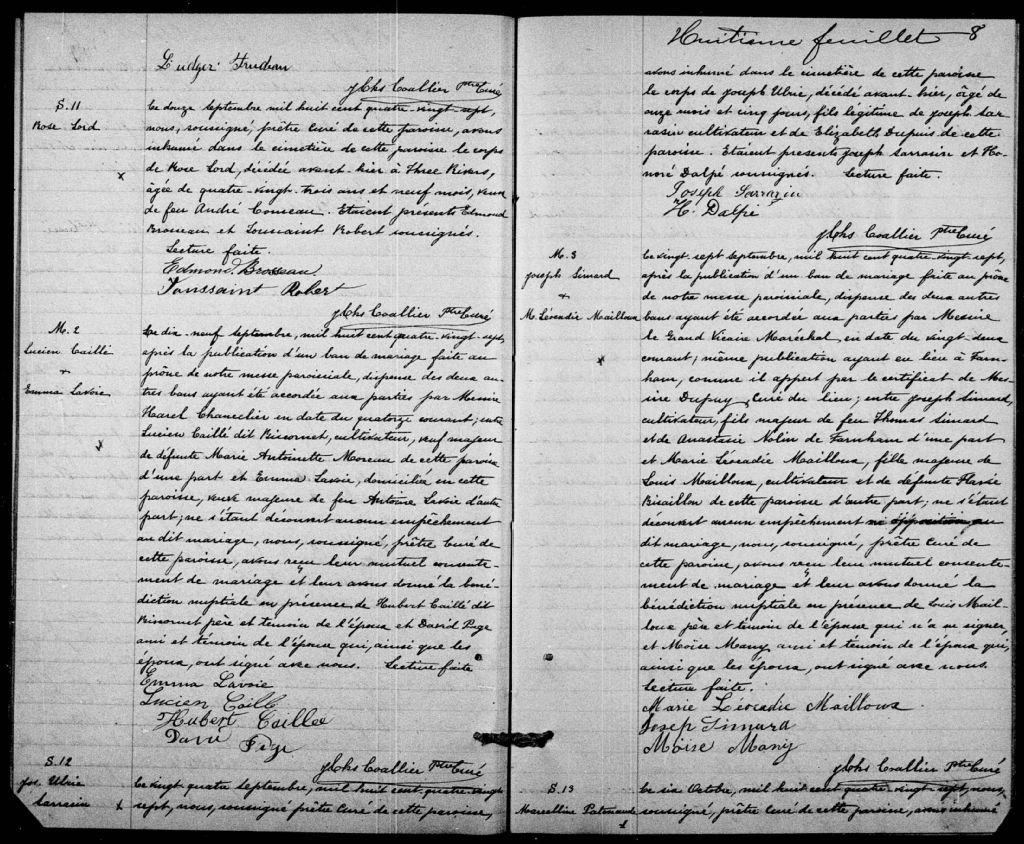 Ludger Trudeau
J Chs Coallier Ptre Curé
S. 11
Rose Lord
Le douze Septembre mil huit cent quatre-vingt-sept,
nous, soussigné, prêtre Curé de cette paroisse, avons
inhumé dans le cimetière de cette paroisse le corps
de Rose Lord, décédée avant-hier à Three Rivers,
âgée de quatre-vingt-trois ans et neuf mois, veuve
de feu André Comeau. Etaient présents Edmond
Brosseau et Toussaint Robert soussignés.
Lecture faite.
Edmond Brosseau
Toussaint Robert
J Chs Coallier Ptre Curé
M. 2
Lucien Caillé
+
Emma Lavoie
Le dix-neuf Septembre, mil huit cent quatre-vingt-sept,
après la publication d'un ban de mariage faite au
prône de notre messe paroissiale, dispense des deux au-
tres bans ayant été accordée aux parties par Messire
Harel Chancelier en date du quatorze courant; entre
Lucien Caillé dit Biscornet, cultivateur, veuf majeur
de défunte Marie Antoinette Moreau de cette paroisse
d'une part et Emma Lavoie, domiciliée en cette
paroisse, veuve majeure de feu Antoine Lavoie d'autre
part; ne s'étant découvert aucun empêchement
au dit mariage, nous, soussigné, prêtre Curé de
cette paroisse, avons reçu leur mutuel consente-
ment de mariage et leur avons donné la béné-
diction nuptiale en présence de Hubert Caillé dit
Biscornet père et témoin de l'époux et David Page
ami et témoin de l'épouse qui, ainsi que les
époux, ont signé avec nous. Lecture faite
Emma Lavoie
Lucien Caille
Hubert Caillee
Davi Page
J Chs Coallier Ptre Curé
S. 12
Jos. Ulric
Sarrasin
Le vingt quatre Septembre, mil huit cent quatre-vingt-
sept, nous, soussigné prêtre Curé de cette paroisse,
Huitième feuillet 8
avons inhumé dans le cimetière de cette paroisse
le corps de Joseph Ulric, décédé avant-hier, âgé de
onze mois et cinq jours, fils légitime de Joseph Sar-
rasin cultivateur et de Elizabeth Dupuis de cette
paroisse. Etaient presents Joseph Sarrasin et Ho-
noré Dalpé soussignés. Lecture faite.
Joseph Sarrazin
H. Dalpé
J Chs Coallier Ptre Curé
M. 3
Joseph Simard
+
M. Léocadie Mailloux
Le vingt sept Septembre, mil huit cent quatre vingt sept,
après la publication d'un ban de mariage faite au prône
de notre messe paroissiale, dispense des deux autres
bans ayant été accordée aux parties par Messire
le Grand Vicaire Maréchal, en date du vingt-deux
courant; même publication ayant eu lieu à Farn-
ham, comme il appert par le certificat de Mes-
sire Dupuy, Curé du lieu; entre Joseph Simard,
cultivateur, fils majeur de feu Thomas Simard
et de Anastasie Nolin de Farnham d'une part
et Marie Léocadie Mailloux, fille majeure de
Louis Mailloux, cultivateur et de défunte Flavie
Bisaillon de cette paroisse d'autre part, ne s'étant
découvert aucun empêchement ni opposition au
dit mariage, nous, soussigné, prêtre Curé de
cette paroisse, avons reçu leur mutuel consente-
ment de mariage et leur avons donné la
bénédiction nuptiale en présence de Louis Mail-
loux père et témoin de l'épouse qui n'a su signer,
et Moïse Many, ami et témoin de l'époux qui,
ainsi que les époux, ont signé avec nous.
Lecture faite.
Marie Léocadie Mailloux
Josep Simard
Moïse Many
J Chs Coallier Ptre Curé
S. 13
Marcelline Patenaude
Le six Octobre, mil huit cent quatre vingt sept, nous,
soussigné, prêtre Curé de cette paroisse, avons inhumé